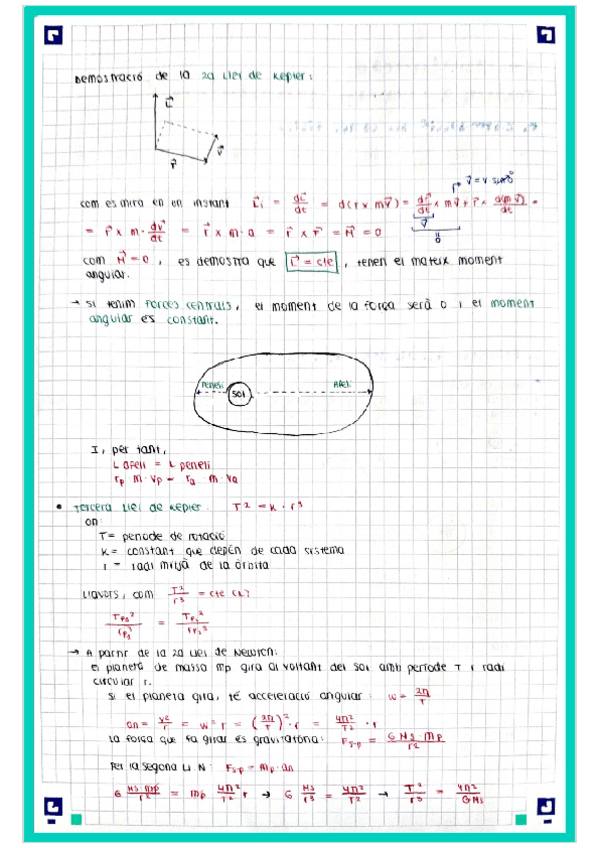 Demostració de la 2a Llei de Kepler:
L⃗
r⃗
v⃗
v⃗ = v
com es mira en en instant L⃗i = dL⃗/dt = d(r x mv⃗) = dr⃗/dt x mv⃗ + r⃗ x d(mv⃗)/dt =
v⃗
0
= r⃗ x m · dv⃗/dt = r⃗ x m·a = r⃗ x F⃗ = M⃗ = 0
com M⃗ = 0, es demostra que L⃗ = cte, tenen el mateix moment
angular.
→ Si tenim forces centrals, el moment de la força serà 0 i el moment
angular és constant.
Periheli
Sol
Afeli
I, per tant,
L afeli = L periheli
rp · m · vp = ra · m · va
• Tercera Llei de Kepler: T² = K · r³
on:
T = període de rotació
K = constant que depèn de cada sistema
r = radi mitjà de la òrbita
Llavors, com T²/r³ = cte
→ A partir de la 2a Llei de Newton:
el planeta de massa mp gira al voltant del Sol amb període T i radi
circular r.
Si el planeta gira, té acceleració angular: w = 2π/T
an = v²/r = w² r = (2π/T)² · r = 4π²/T² · r
La força que fa girar és gravitatòria: Fs-p = G Ms · mp/r²
Per la segona LL.N: Fs-p = mp · an
G Ms mp/r² = mp 4π²/T² r → G Ms/r³ = 4π²/T² → T²/r³ = 4π²/GMs